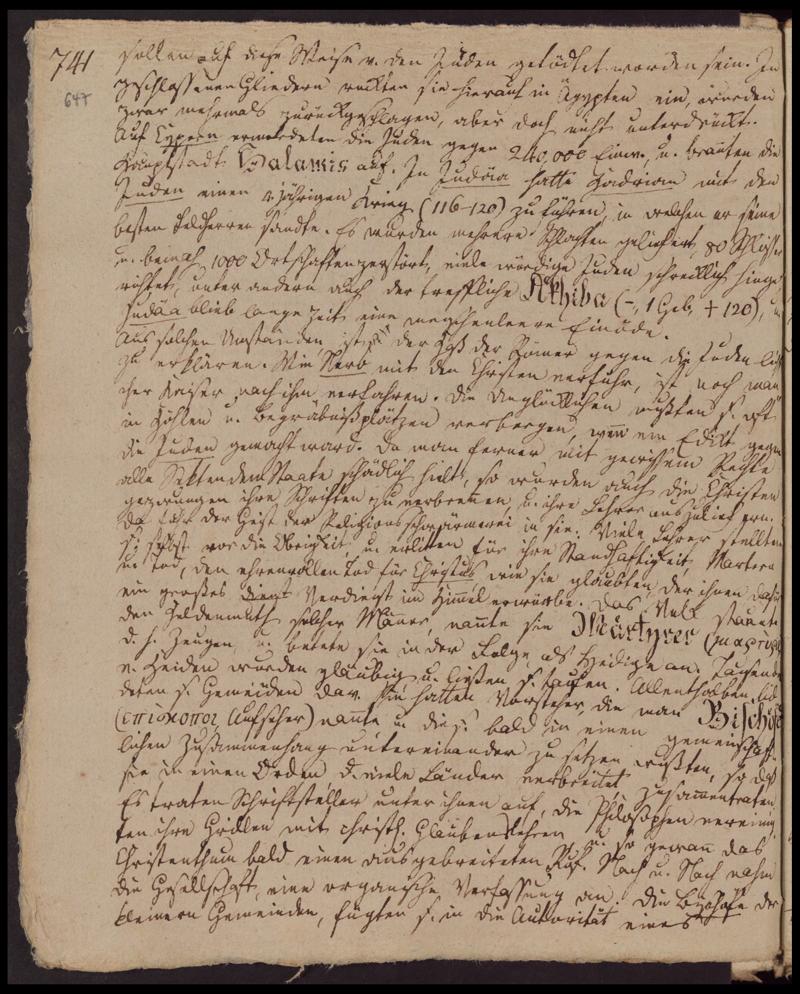 741
647
sollen auf diese Weise v. den Juden getödtet worden sein. In
geschlossenen Gliedern rückten sie hierauf in Ägypten ein, wurden
zwar mehrmals zurückgeschlagen, aber doch nicht unterdrückt.
Auf Cypern ermordeten die Juden gegen 240,000 Einw. u. brañten die
Hauptstadt Salamis auf. In Judäa hatte Hadrian mit den
Juden einen 4jährigen Krieg (116-120) zu führen, in welchen er seine
besten Feldherren sandte. Es wurden mehrere Schlachten geliefert, 50 Schlösser
u. beinah 1000 Ortschaften zerstört, viele würdige Juden schrecklich hinge
richtet, unter andern auch der treffliche Akhiba (-, 1 Geb, + 120), u
Judäa blieb lange Zeit eine menschenleere Einöde.
Aus solchen Umständen ist der Haß der Römer gegen die Juden
zu erklären. Wie Nero mit den Christen verfuhr, ist noch man
cher Kaiser nach ihm verfahren. Die Unglücklichen mußten s. oft
in Höhlen u. Begräbnißplätzen verbergen, weñ ein Edikt gegen
die Juden gemacht ward. Da man ferner mit gewissem Rechte
alle Sekten dem Staate schädlich hielt, so wurden auch die Christen
gezwungen ihre Schriften zu verbreñen, u. ihre Lehrer auszuliefern.
Da fuhr der Geist der Religionsschwärmerei in sie. Viele Lehrer stellten
s. selbst vor die Obrigkeit, u. erlitten für ihre Standhaftigkeit Martern
u. Tod, den ehrenvollen Tod für Christus wie sie glaubten, der ihnen dafür
ein großes Verdienst im Himmel erwürbe. Das Volk staunte
den Heldenmuth solcher Männer, nañte sie Märtyrer (μαρτυρ
d. h. Zeugen, u. betete sie in der Folge als Heilige an. Tausende
v. Heiden wurden gläubig u. ließen s. taufen. Allenthalben bil
deten s. Gemeiden dav. Sie hatten Vorsteher, die man Bischöfe
(επισκοποι Aufseher) nañte u. die s. bald in einen gemeinschaft
lichen Zusammenhang untereinander zu setzen wußten, so daß
sie in einen Orden d. viele Länder verbreitet zusammentraten.
Es traten Schriftsteller unter ihnen auf, die Philosophen verein
ten ihre Grillen mit christl. Glaubenslehren u. so gewañ das
Christenthum bald einen ausgebreiteten Ruf. Nach u. Nach nahm
die Gesellschaft eine organische Verfassung an. Die Bischöfe der
kleinern Gemeinden, fügten s. in die Autorität eines